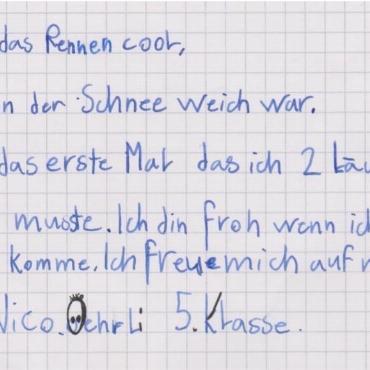 das Rennen cool,
n der Schnee weich war.
das erste Mal das ich 2 Läu
musste. Ich bin froh wenn ic
komme. Ich freue mich auf
Nico. Oehrli 5. Klasse.